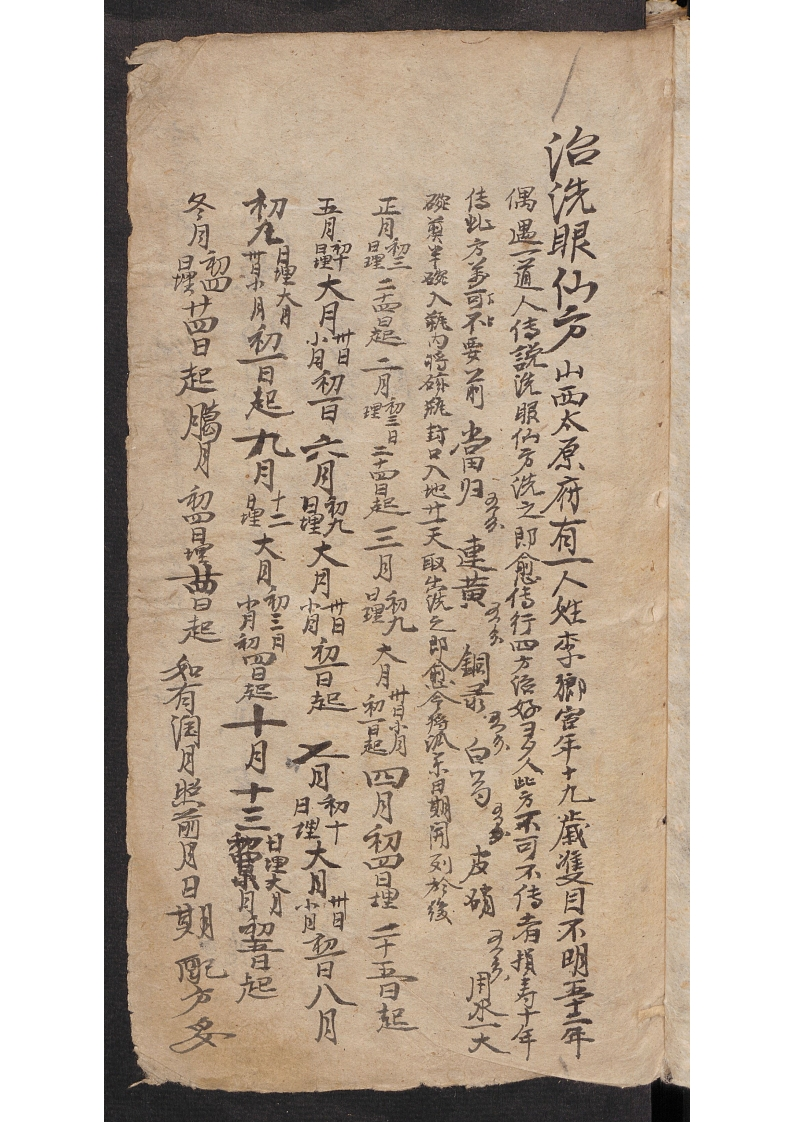 治洗眼仙方 山西太原府有一人姓李鄉宦年十九歲雙目不明五十一年
偶遇一道人传說洗眼仙方洗之即愈传行四方治好多人此方不可不传者損寿十年
传此方萬不可要㣇 当归 五分 連黄 五分 銅录 五分 白芍 五分 皮硝 五分 用水一大
碗煎半碗入瓶內将磁瓶封口入地廿一天取出洗之即愈今将 日期開列於後
正月初三日埋二十四日起 二月初三日埋二十四日起 三月初九日埋 大月卅日小月初一日起 四月初四日埋二十五日起
五月初十日埋 大月卅日小月初一日 六月初九日埋 大月卅日小月初一日起 七月初十日埋 大月卅日小月初一日 八月
初九日埋 大月卅日小月初一日起 九月十二日埋 大月初三日小月初四日起 十月十三日埋 大月初四日小月初五日起
冬月初四日埋廿四日起 臈月初四日埋廿四日起 如有润月照前月日期配方妥